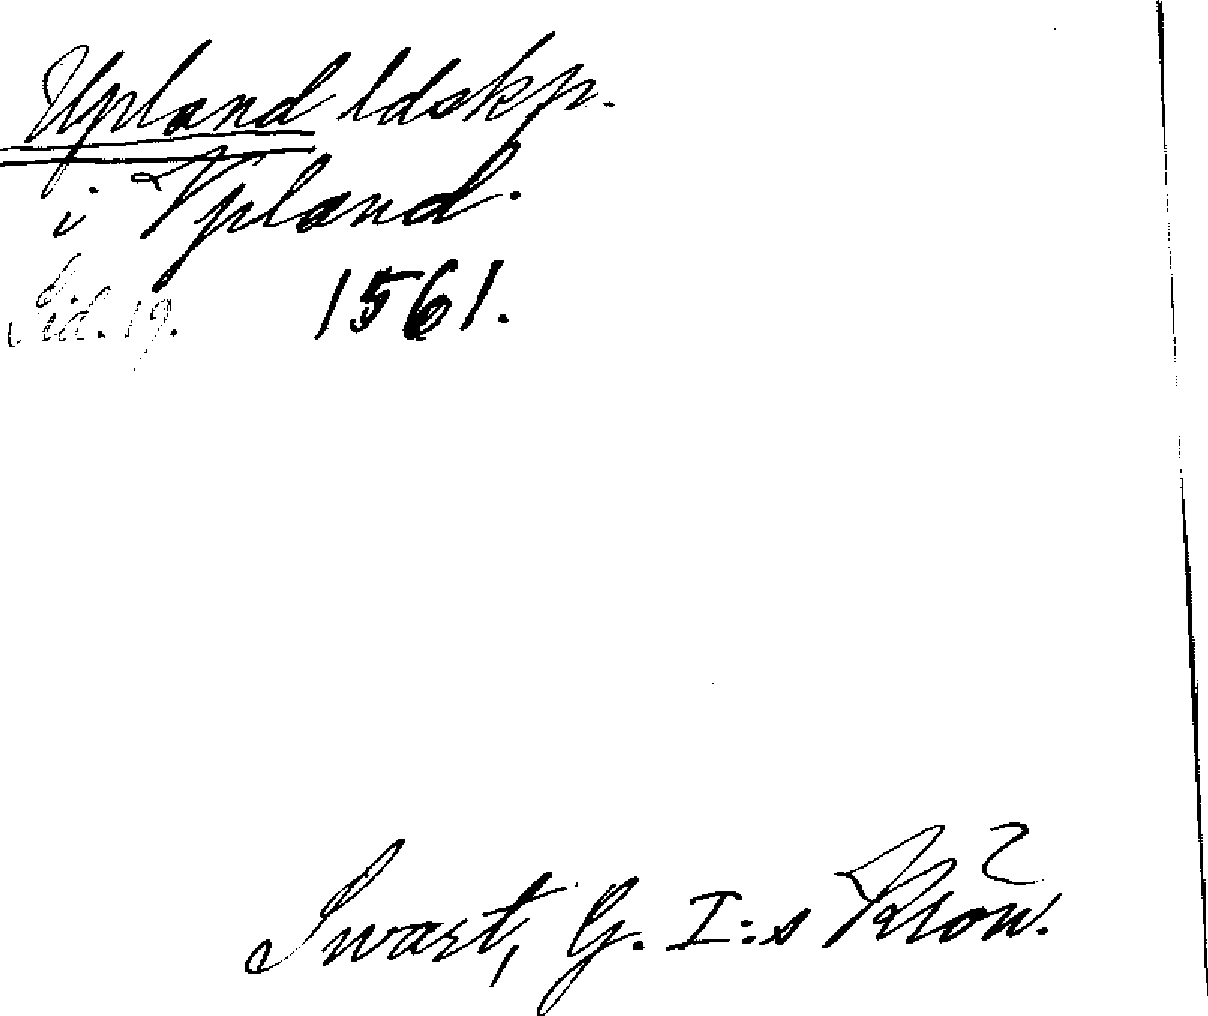 Upland ldskp.
i Vpland.
Sid. 19. 1561.
Swart, G. I:s Krön.